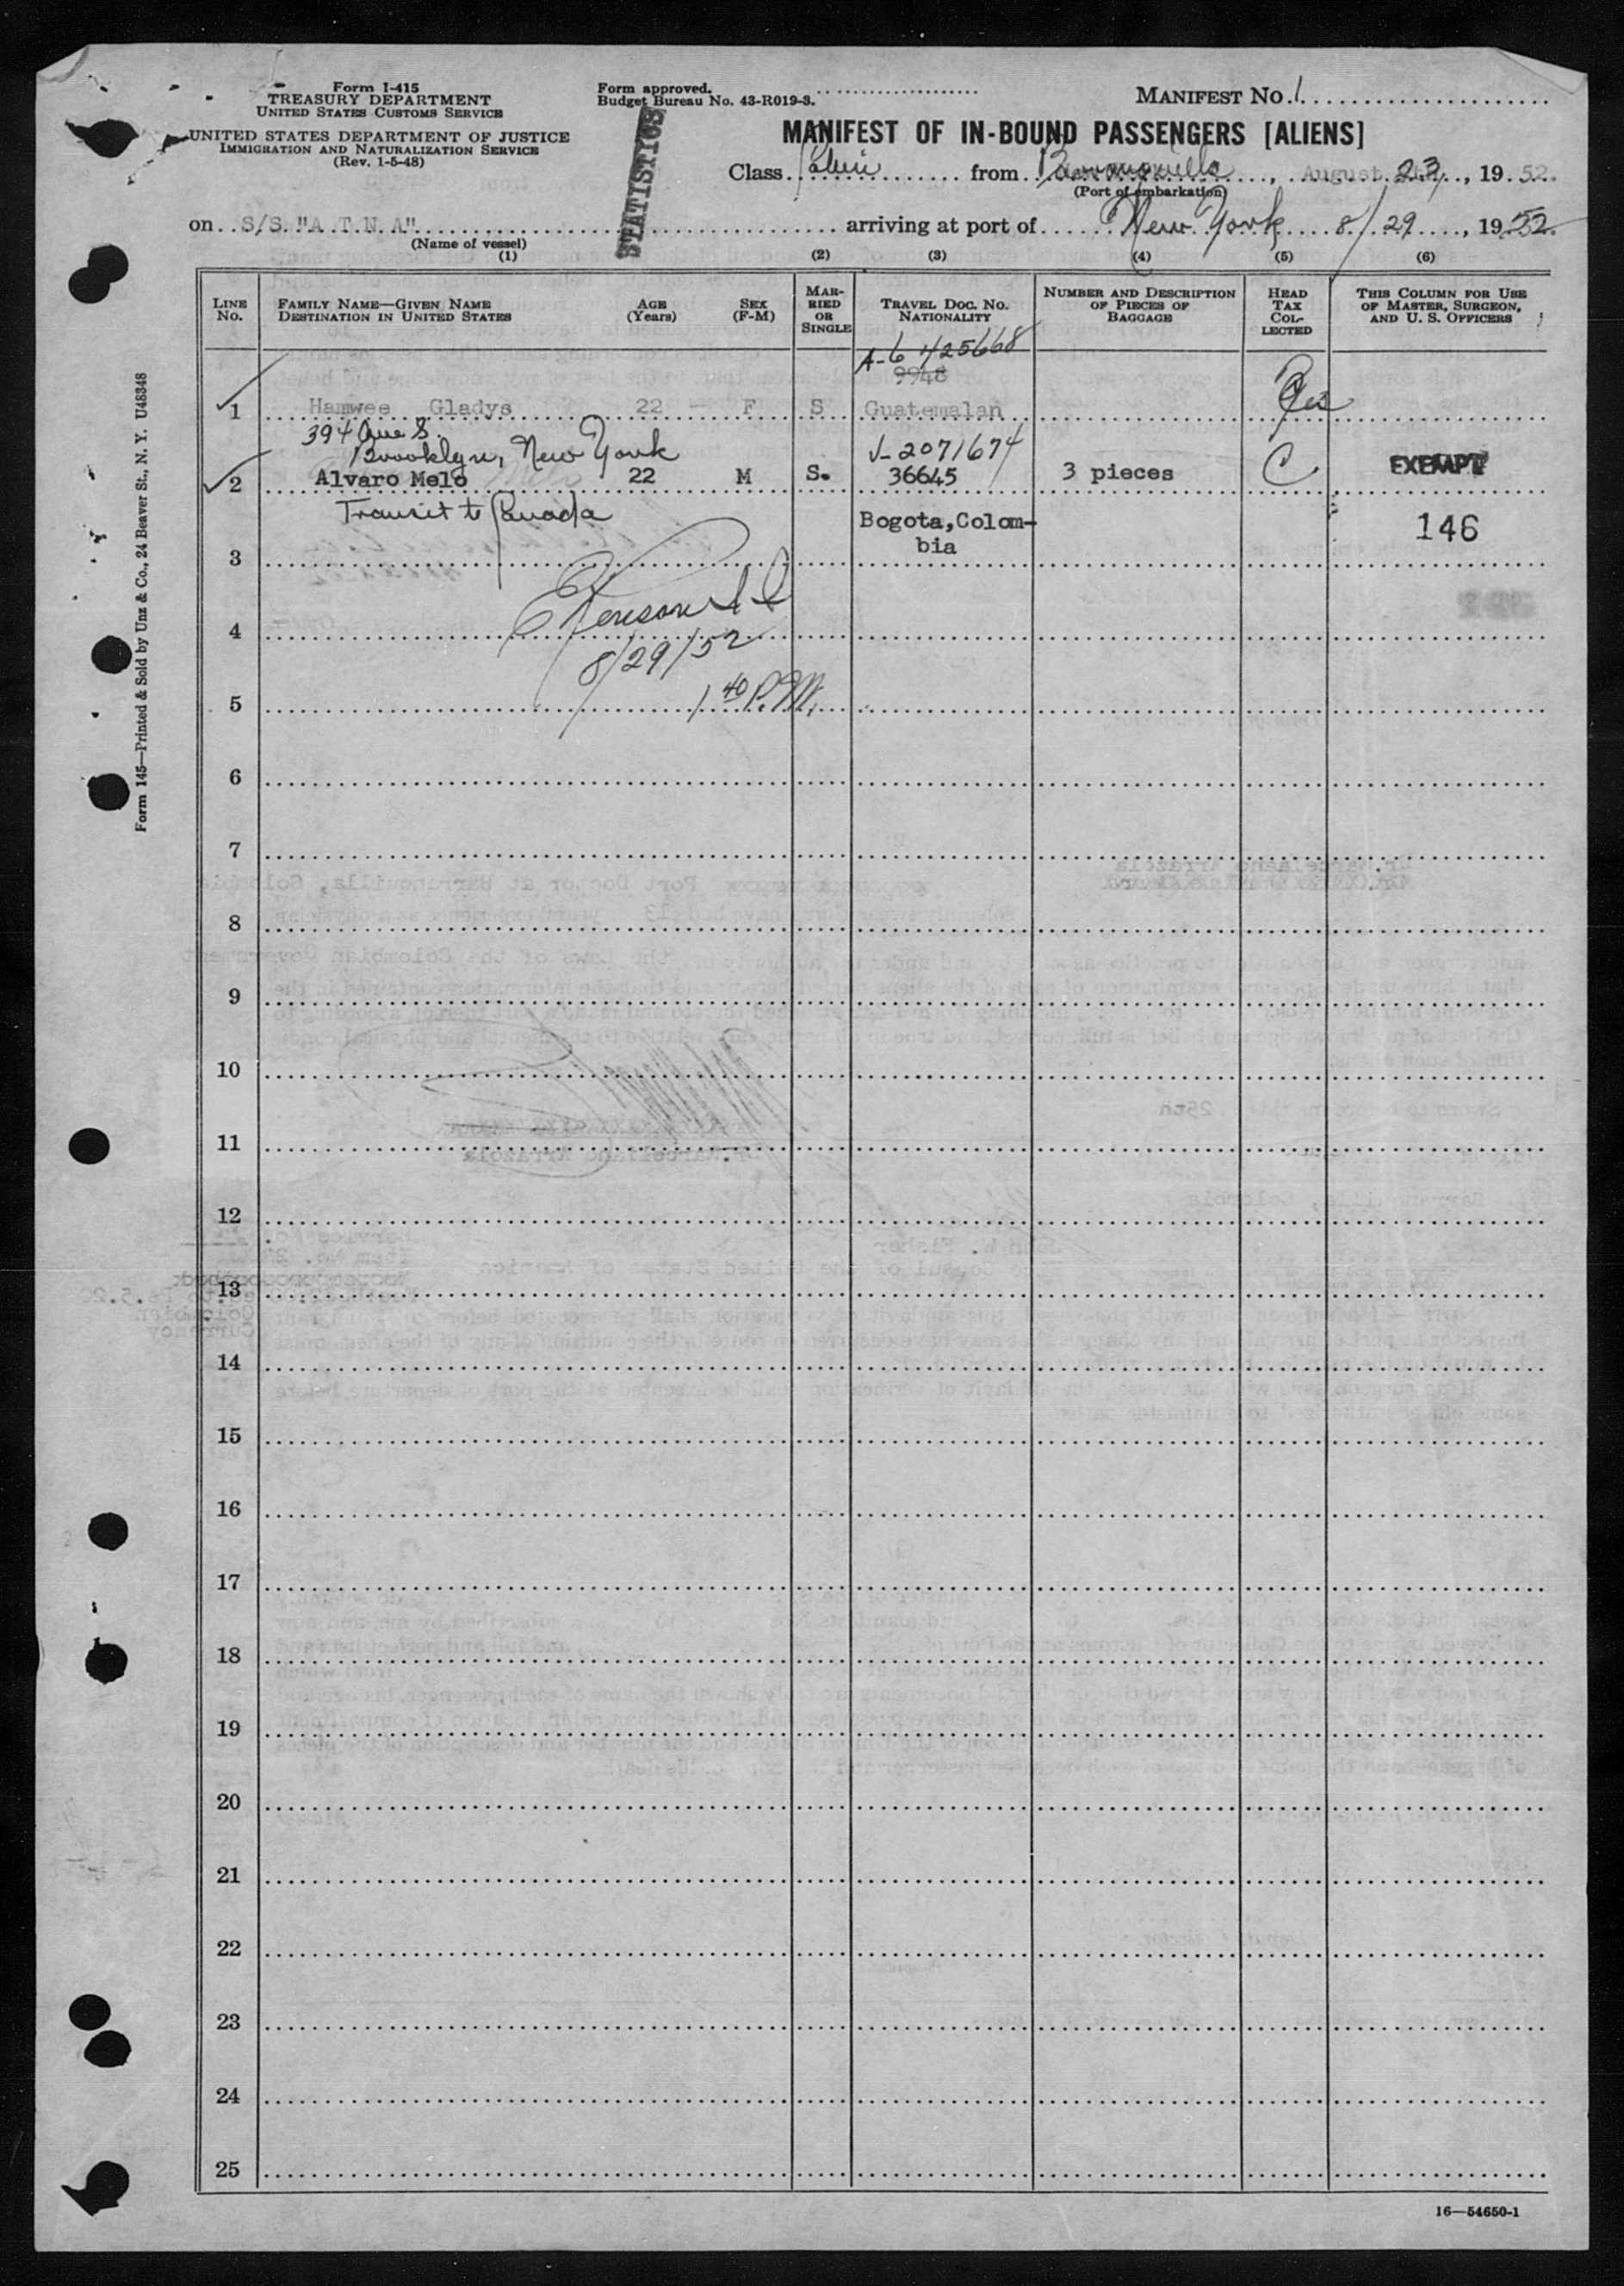 Form I-415
TREASURY DEPARTMENT
UNITED STATES CUSTOMS SERVICE
UNITED STATES DEPARTMENT OF JUSTICE
IMMIGRATION AND NATURALIZATION SERVICE
(Rev. 1-5-48)
Form approved.
Budget Bureau No. 43-R019-3.
STATISTICS
MANIFEST NO. 1
MANIFEST OF IN-BOUND PASSENGERS [ALIENS]
Class from Barranquilla, August 23, 1952.
(Port of embarkation)
on S/S. "A T N A" arriving at port of New York 8/29, 1952.
(Name of vessel)
(1) (2) (3) (4) (5) (6)
LINE No.
FAMILY NAME—GIVEN NAME
DESTINATION IN UNITED STATES
AGE (Years)
SEX (F-M)
MARRIED OR SINGLE
TRAVEL DOC. NO. NATIONALITY
NUMBER AND DESCRIPTION OF PIECES OF BAGGAGE
HEAD TAX COLLECTED
THIS COLUMN FOR USE OF MASTER, SURGEON, AND U. S. OFFICERS
A-6 425668
9948
1 Hamwee Gladys 22 F S Guatemalan
394 Ave S.
Brooklyn, New York
V-2071674
2 Alvaro Melo 22 M S. 36645 3 pieces C EXEMPT
Transit to Canada
Bogota, Colom-
bia
146
3
4
8/29/52
5
1 40 P.M.
6
7
8
9
10
11
12
13
14
15
16
17
18
19
20
21
22
23
24
25
16—54650-1
Form 145—Printed & Sold by Unz & Co., 24 Beaver St., N. Y. U48348